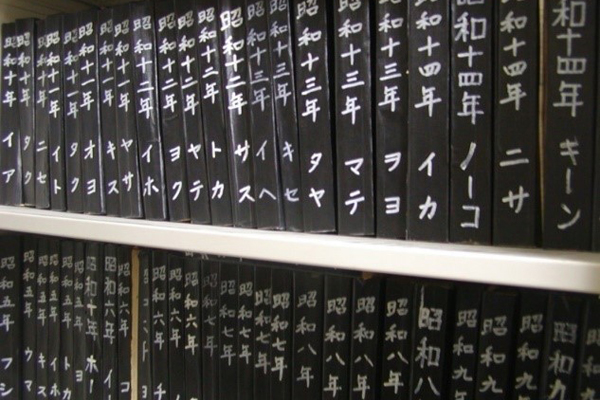 昭和十年 イア
昭和十年 タク
昭和十年 ニセ
昭和十一年 イト
昭和十一年 タク
昭和十一年 オヨ
昭和十一年 キス
昭和十一年 ヤサ
昭和十二年 イホ
昭和十二年 ヨク
昭和十二年 ヤテ
昭和十二年 トカ
昭和十二年 サス
昭和十三年 イヘ
昭和十三年 キセ
昭和十三年 タヤ
昭和十三年 マテ
昭和十三年 ヲヨ
昭和十四年 イカ
昭和十四年 ノーコ
昭和十四年 ニサ
昭和十四年 キーン
昭和五年 フシ
昭和五年 ウマ
昭和五年 キス
昭和五年 イホ
昭和五年 トカ
昭和十年 ホー
昭和六年 イー
昭和六年 コ
昭和六年 チ
昭和六年
昭和六年
昭和七年
昭和七年
昭和七年
昭和七年
昭和七年
昭和八年
昭和八年
昭和八年
昭和八年
昭和八
昭和九
昭和九
昭和九
昭和九